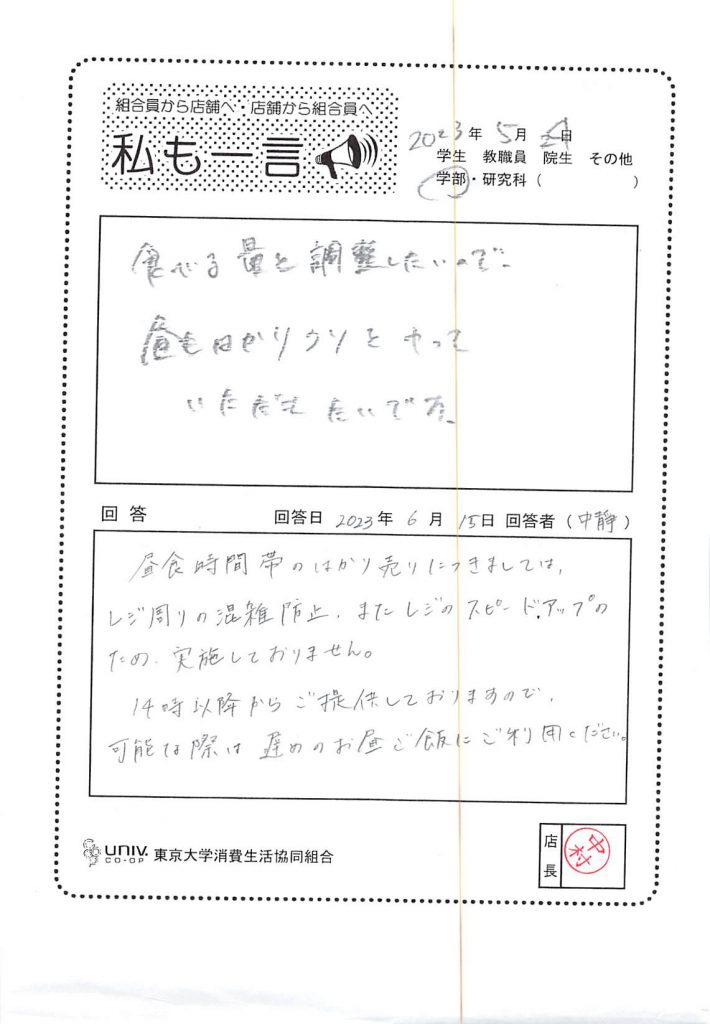 組合員から店舗へ・店舗から組合員へ
私も一言
2023年 5月 24日
学生 教職員 院生 その他
学部・研究科 ( )
食べる量を調整したいので、
昼もはかりウリをやって
いただきたいです。
回答 回答日 2023年 6月 15日 回答者 (中静)
昼食時間帯のはかり売りにつきましては、
レジ周りの混雑防止、またレジのスピードアップの
ため、実施しておりません。
14時以降からご提供しておりますので、
可能な際は遅めのお昼ご飯にご利用ください。
UNIV. CO-OP 東京大学消費生活協同組合
店長
中村